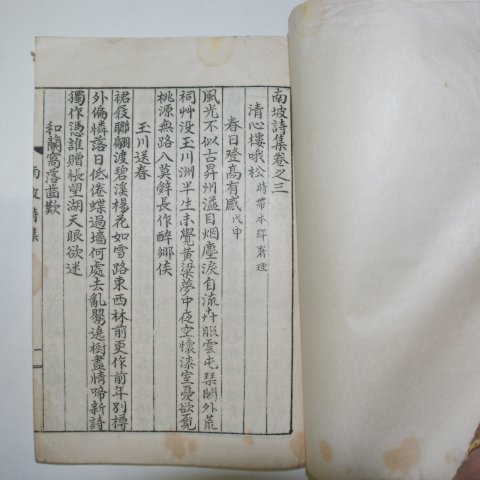 南坡詩集卷之三
清心樓哦松 時帶本郡署理
春日登高有感 戊申
風光不似古昇州溢目烟塵淚自流卉服雲屯琹閣外荒
祠艸没玉川洲半生未覺黃粱夢中夜空懷漆室憂欲覓
桃源無路入莫辤長作醉鄉侯
玉川送春
裙屐聯翩渡碧溪楊花如雪路東西林前更作前年別樽
外偏憐落日低倦蝶過墻何處去亂鶯遶樹盡情啼新詩
獨作憑誰贈悵望湖天眼欲迷
和蘭窩落齒歎
南坡詩集